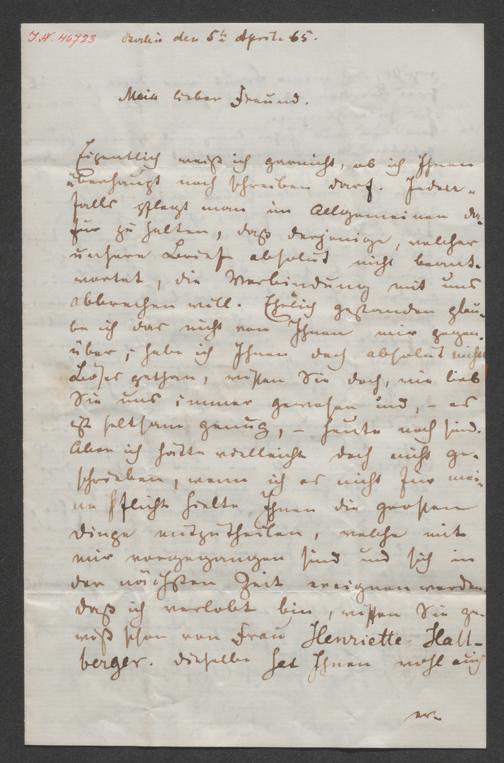 J.N. 46723
Berlin den 5t April 65.
Mein lieber Freund.
Eigentlich weiß ich garnicht, ob ich Ihnen
überhaupt noch schreiben darf. Jeden-
falls pflegt man im Allgemeinen da-
für zu halten, daß derjenige, welcher
unsere Briefe absolut nicht beant-
wortet, die Verbindung mit uns
abbrechen will. Ehrlich gestanden glau-
be ich das nicht von Ihnen mir gegen-
über; habe ich Ihnen doch absolut nichts
Böses gethan, wissen Sie doch, wie lieb
Sie uns immer gewesen und, – es
ist seltsam genug, – heute noch sind.
Aber ich hätte vielleicht doch nicht ge-
schrieben, wenn ich es nicht für mei-
ne Pflicht hielte, Ihnen die großen
Dinge mitzutheilen, welche mit
mir vorgegangen sind und sich in
der nächsten Zeit ereignen werden.
Daß ich verlobt bin, wissen Sie ge-
wiß schon von Frau Henriette Hall-
berger. Dieselbe hat Ihnen wohl auch
er-